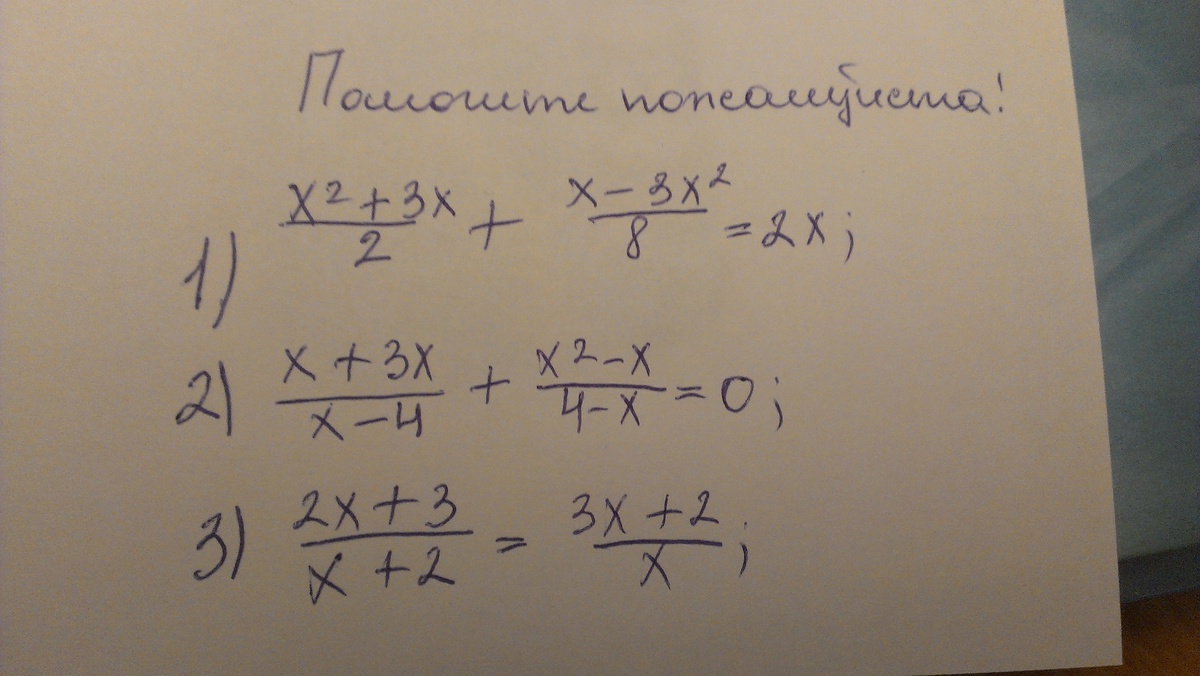 Помогите пожалуйста!
1) (x²+3x)/2 + (x-3x²)/8 = 2x;
2) (x+3x)/(x-4) + (x²-x)/(4-x) = 0;
3) (2x+3)/(x+2) = (3x+2)/x;